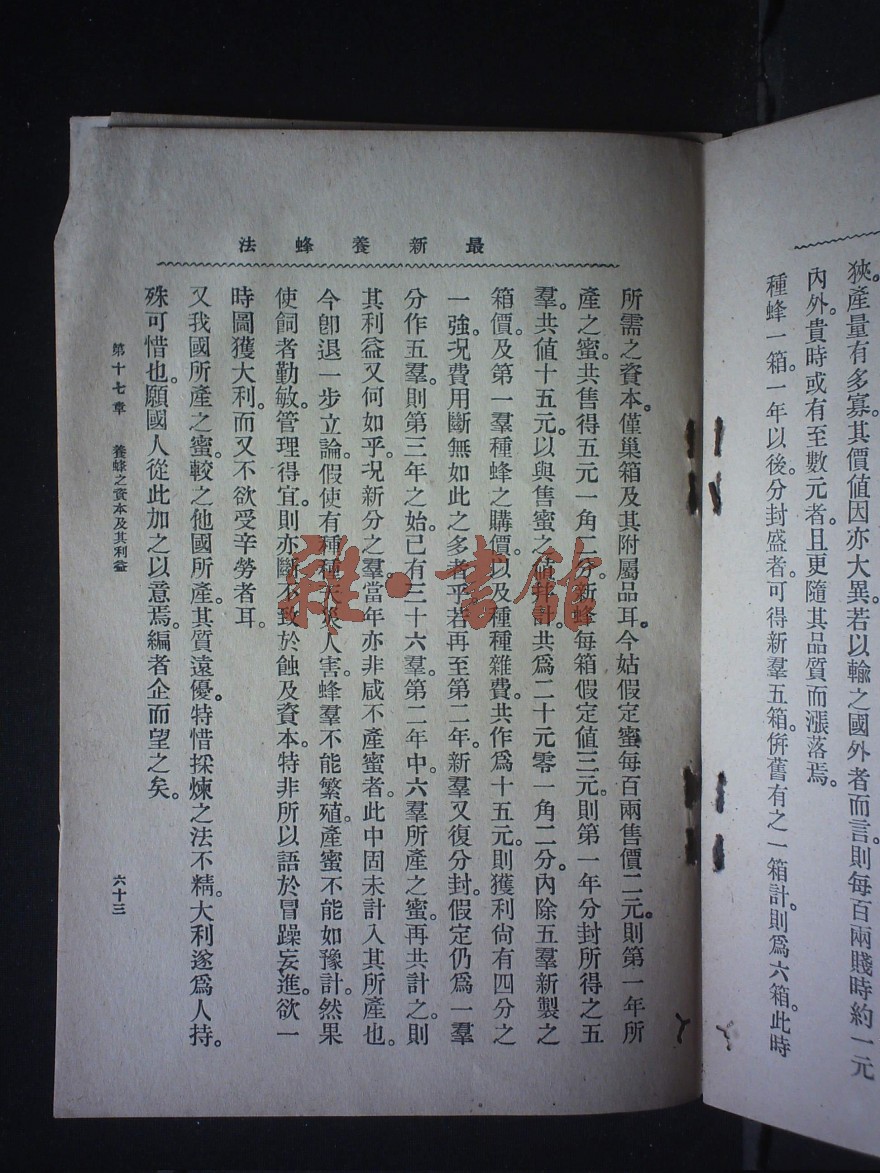 狹。產量有多寡。其價値因亦大異。若以輸之國外者而言。則每百兩賤時約一元
內外。貴時或有至數元者。且更隨其品質而漲落焉。
種蜂一箱。一年以後。分封盛者。可得新羣五箱。倂舊有之一箱計。則爲六箱。此時
最新養蜂法
所需之資本。僅巢箱及其附屬品耳。今姑假定蜜每百兩售價二元。則第一年所
產之蜜。共售得五元一角二分。新蜂每箱假定値三元。則第一年分封所得之五
羣。共値十五元。以與售蜜之値幷計。共爲二十元零一角二分。內除五羣新製之
箱價。及第一羣種蜂之購價。以及種種雜費。共作爲十五元。則獲利尙有四分之
一強。况費用斷無如此之多者乎。若再至第二年。新羣又復分封。假定仍爲一羣
分作五羣。則第三年之始。已有三十六羣。第二年中。六羣所產之蜜。再共計之。則
其利益又何如乎。况新分之羣。當年亦非咸不產蜜者。此中固未計入其所產也。
今卽退一步立論。假使有種種天災人害。蜂羣不能繁殖。產蜜不能如豫計。然果
使飼者勤敏。管理得宜。則亦斷不致於蝕及資本。特非所以語於冒躁妄進。欲一
時圖獲大利。而又不欲受辛勞者耳。
又我國所產之蜜。較之他國所產。其質遠優。特惜採煉之法不精。大利遂爲人持。
殊可惜也。願國人從此加之以意焉。編者企而望之矣。
第十七章 養蜂之資本及其利益
六十三
雜·書館